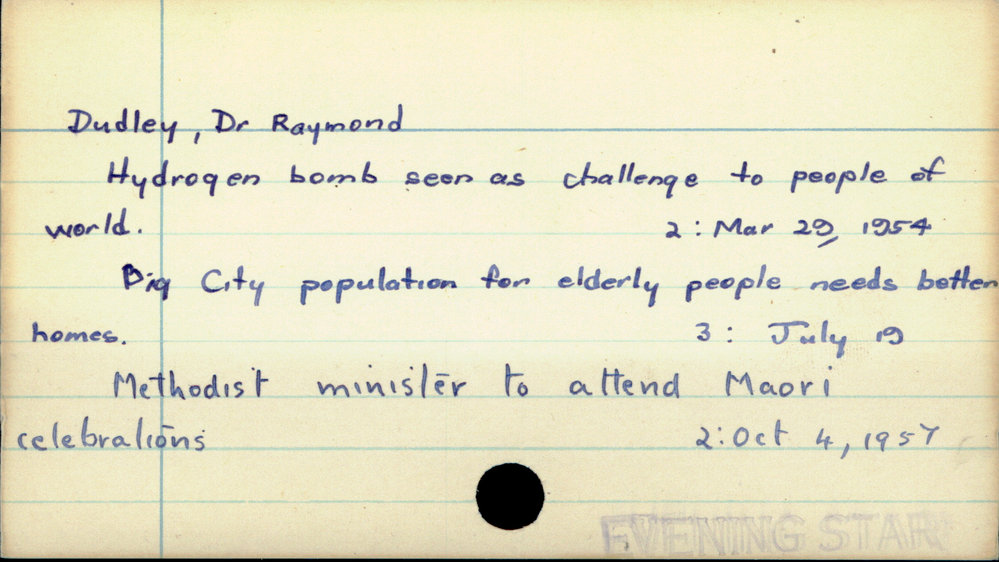 Dudley, Dr Raymond
Hydrogen bomb seen as challenge to people of
world. 2: Mar 29, 1954
Big City population for elderly people needs better
homes. 3: July 19
Methodist minister to attend Maori
celebrations 2: Oct 4, 1957
EVENING STAR